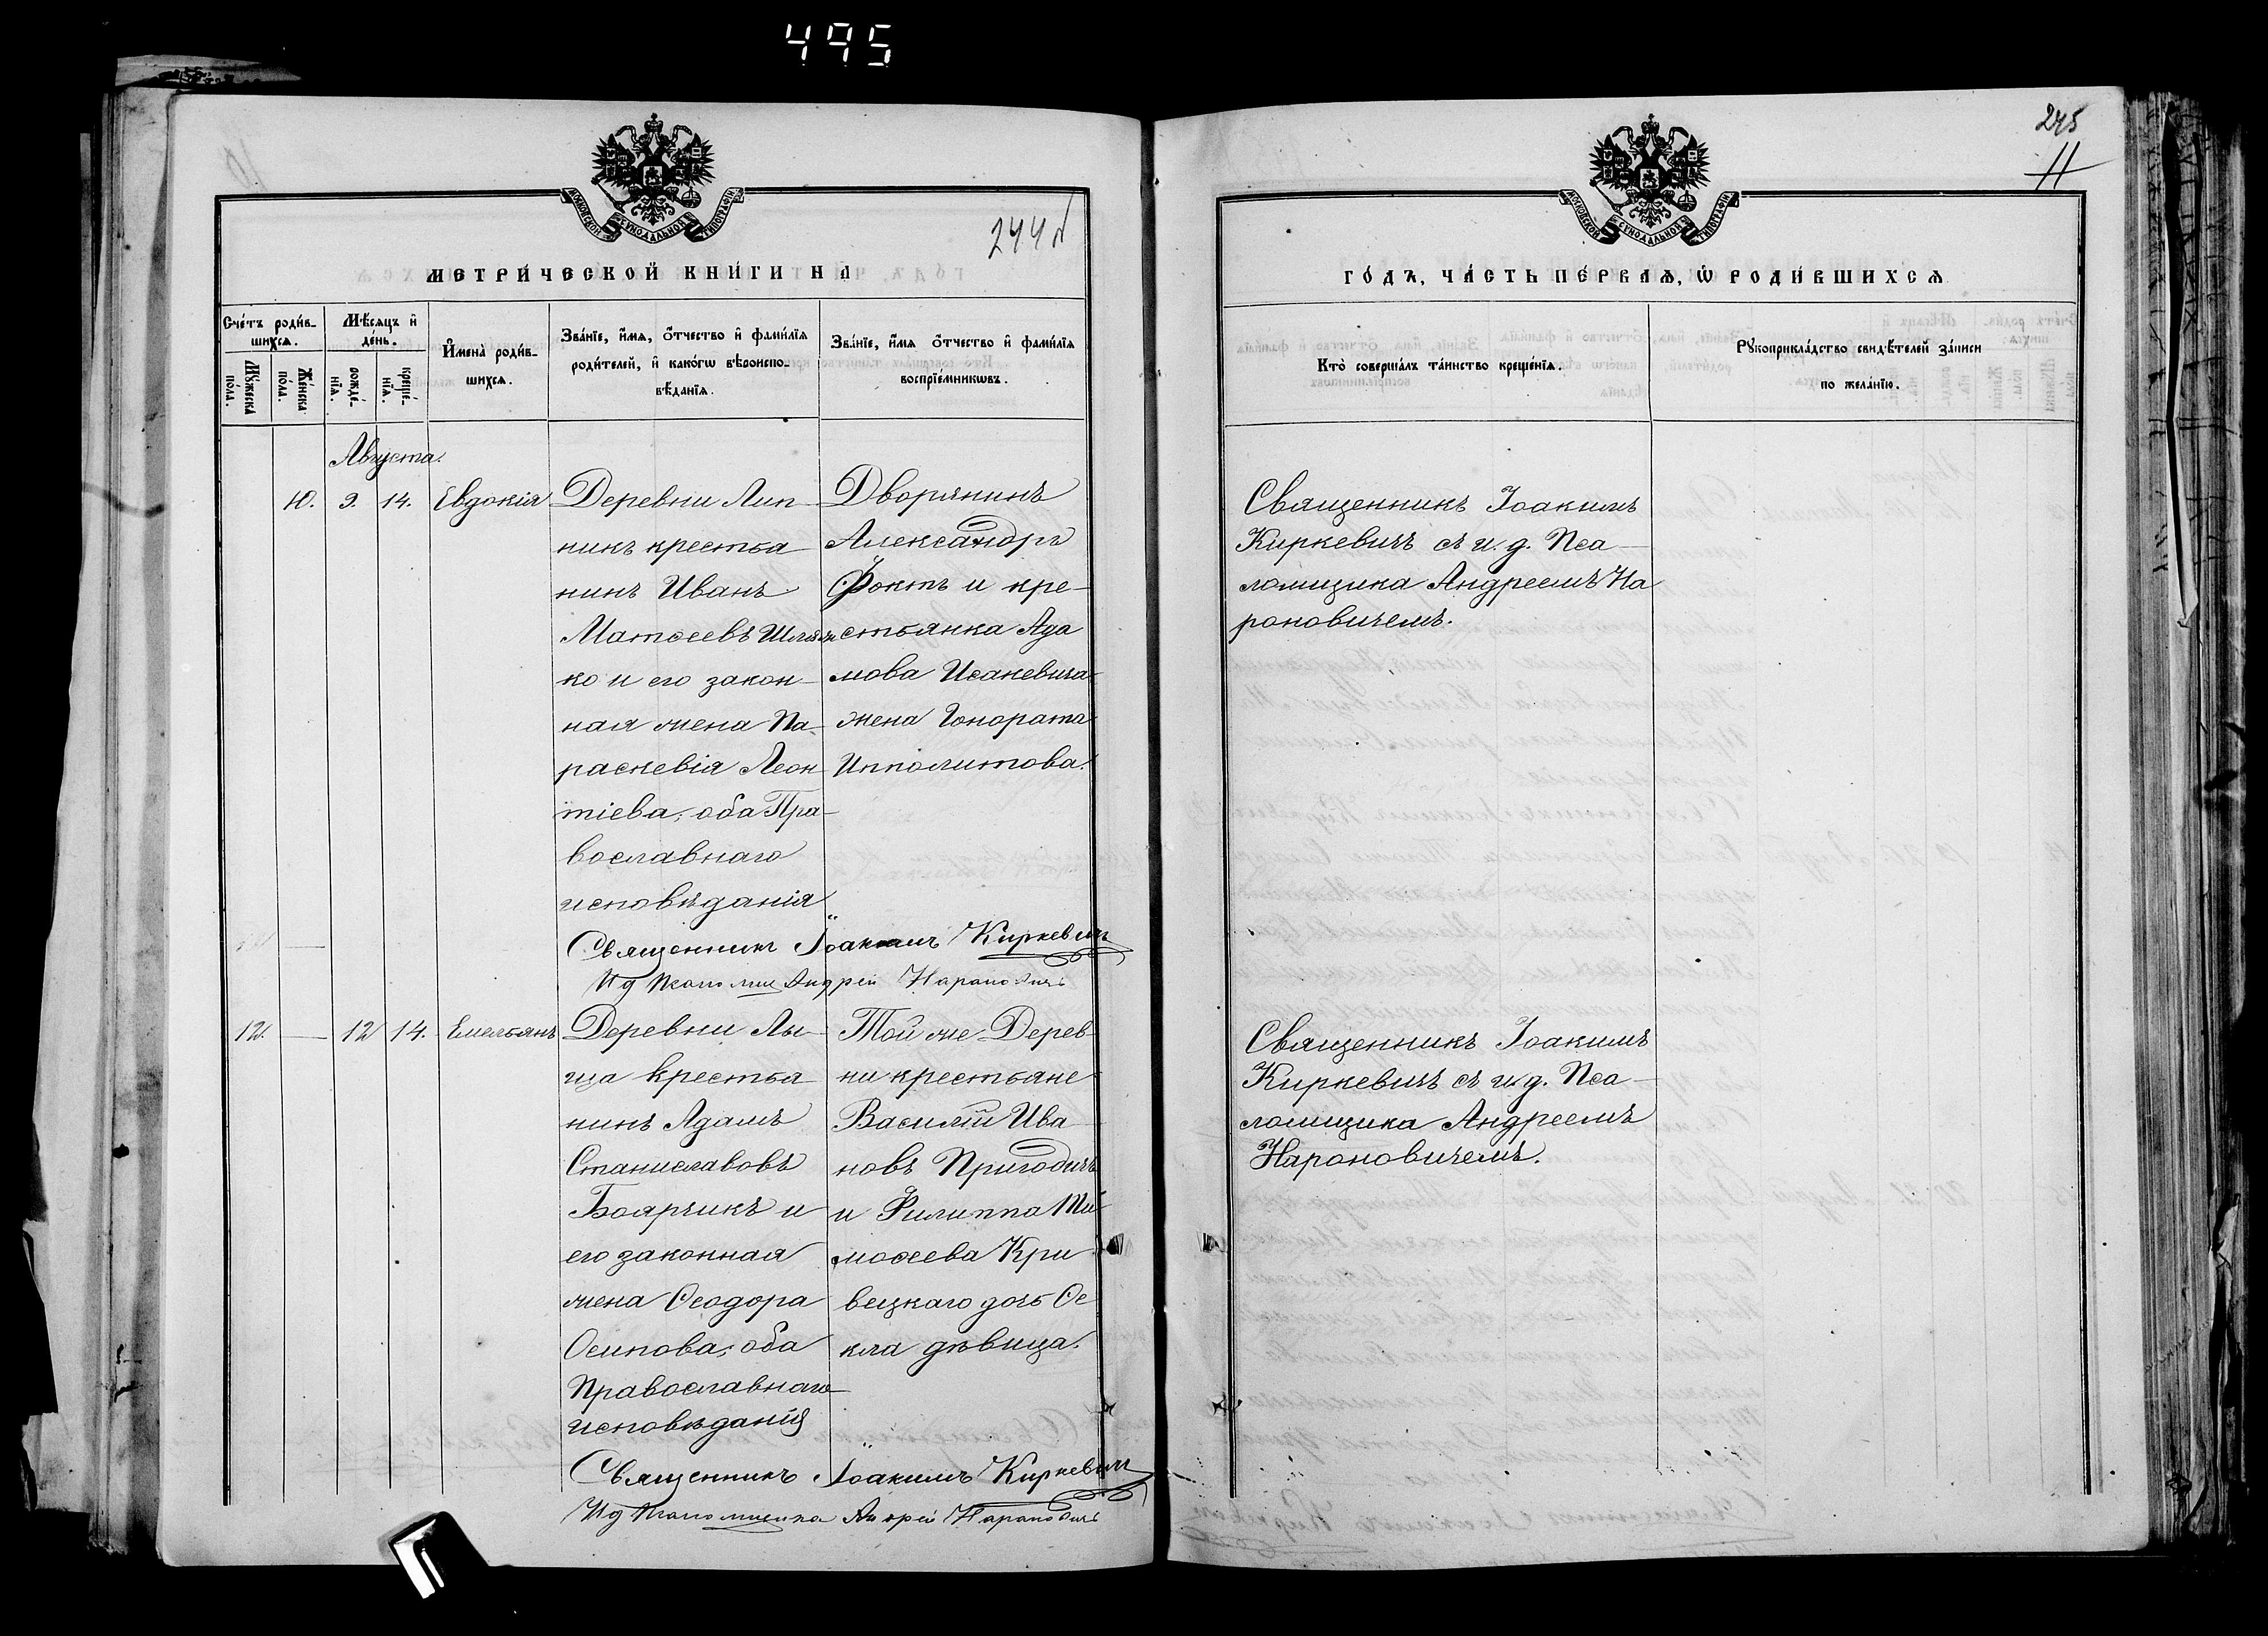 495
МОСКОВСКОЙ СѴНОДАЛЬНОЙ ТИПОГРАФІИ
244 N
МЕТРИ́ЧЕСКОЙ КНИ́ГИ НА
Сче́тъ роди́в-
шихсѧ.
Мѣ́сѧцъ и҆
де́нь.
Му́жеска
по́ла.
Же́нска
по́ла.
рожде́-
нїѧ.
креще́-
нїѧ.
И҆мена̀ роди́в-
шихсѧ.
Зва́нїе, и҆́мѧ, ѻ҆́тчество и҆ фами́лїѧ
роди́телей, и҆ како́гѡ вѣроиспо-
вѣ́данїѧ.
Зва́нїе, и҆́мѧ ѻ҆́тчество и҆ фами́лїѧ
воспрїе́мникѡвъ.
Августа.
10. 9. 14. Евдокія
Деревни Лип
никъ крестья
нинъ Иванъ
Матѳеевъ Шля
ко и его закон
ная жена Па-
раскевія Леон
тіева, оба Пра-
вославнаго
исповѣданія
Дворянинъ
Александръ
Фоктъ и кре-
стьянка Ада
мова Исакевича
жена Гонората
Ипполитова.
Священникъ Іоакимъ Киркевичъ
Ид Псаломщ Андрей Нарановичъ
12. — 12 14. Емельянъ
Деревни Лы-
ща крестья
нинъ Адамъ
Станиславовъ
Боярчикъ и
его законная
жена Ѳеодора
Осипова, оба
Православнаго
исповѣданія
Той же Дерев
ни крестьяне
Василій Ива
новъ Пригодичъ
и Филиппа Ти-
моѳеева Кри
вецкаго дочь Ѳе
кла дѣвица.
Священникъ Іоакимъ Киркевичъ
Ид Псаломщика Андрей Нарановичъ
245
11
МОСКОВСКОЙ СѴНОДАЛЬНОЙ ТИПОГРАФІИ
ГО́ДЪ, ЧА́СТЬ ПЕ́РВАѦ, Ѡ҆ РОДИ́ВШИХСѦ
Кто̀ соверша́лъ та́инство креще́нїѧ.
Рꙋкоприкла́дство свидѣ́телей за́писи
по жела́нїю.
Священникъ Іоакимъ
Киркевичъ съ и. д. Пса-
ломщика Андреемъ На
роновичемъ.
Священникъ Іоакимъ
Киркевичъ съ и. д. Пса-
ломщика Андреемъ
Нароновичемъ.